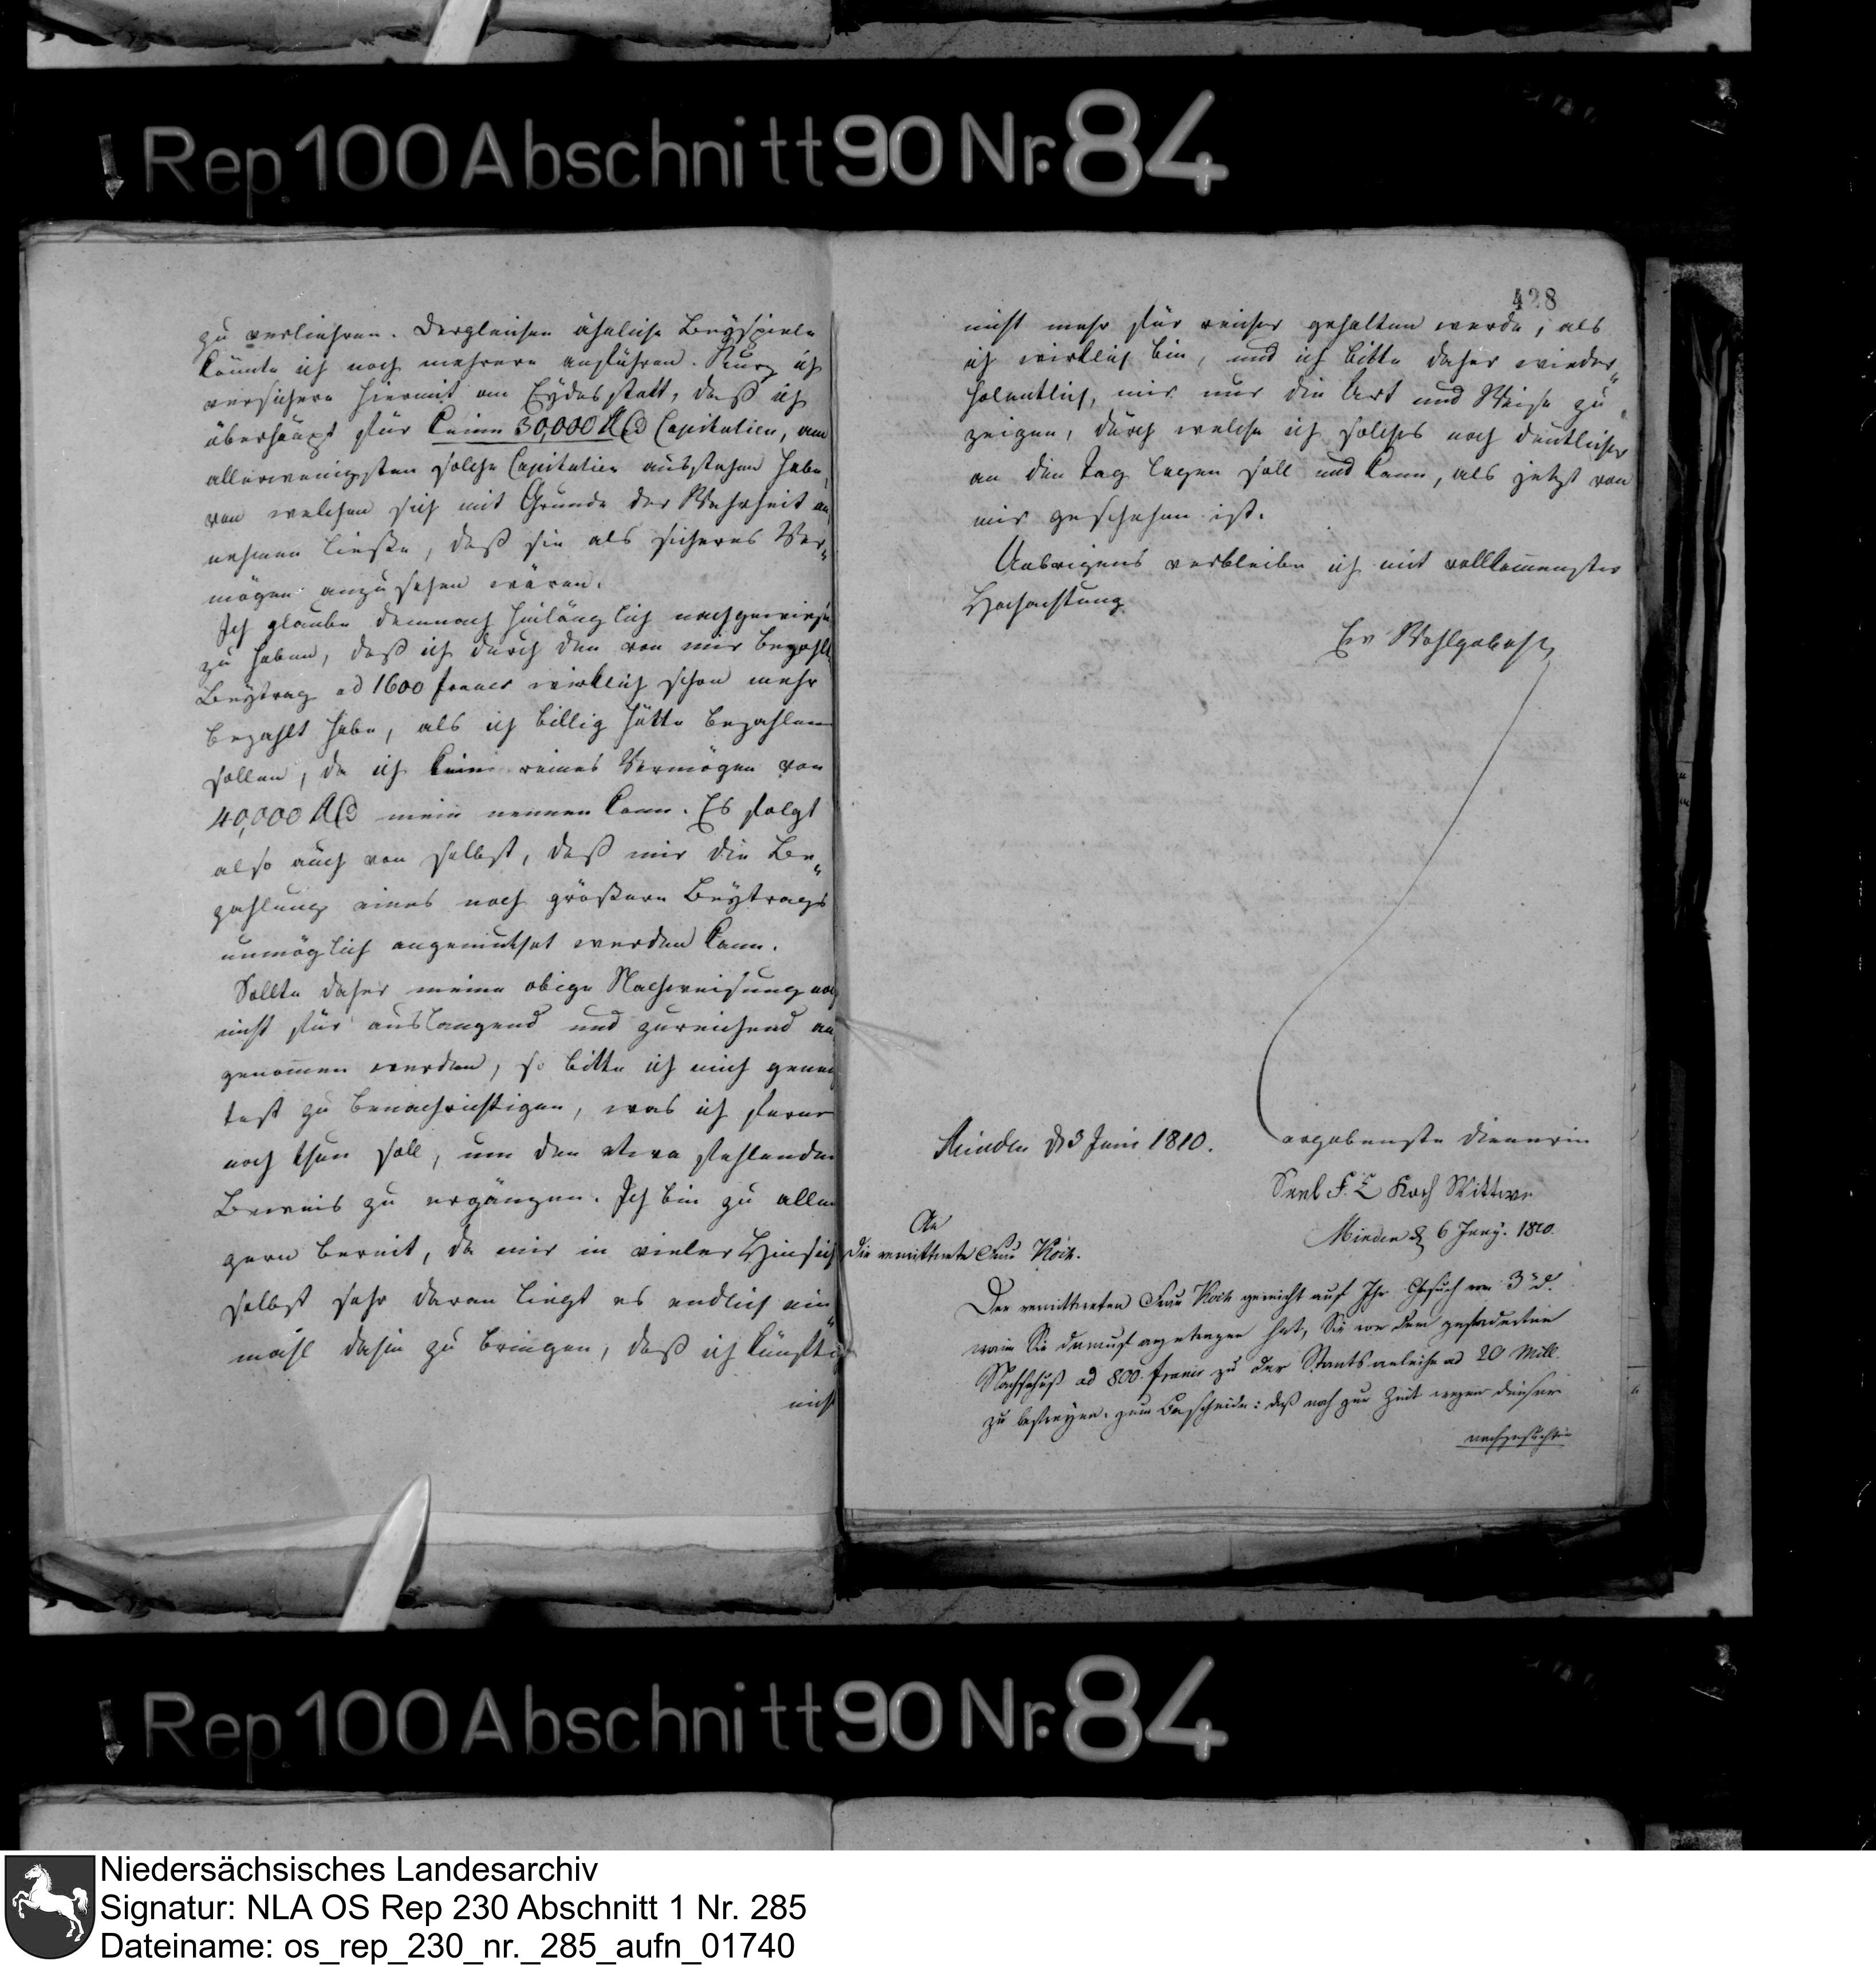 Rep. 100 Abschnitt 90 Nr. 84
zu verliehren. Dergleichen ähnliche Beyspiele
könnte ich noch mehrere anführen. Kurz ich
versichere hiermit an Eydesstatt, daß ich
überhaupt für keine 30,000 Capitalien, am
allerwenigsten solche Capitalien ausstehen habe,
von welchen sich mit Grunde der Wahrheit an
nehmen ließe, daß sie als sicheres Ver„
mögen anzusehen wären.
Ich glaube demnach hinlänglich nachgewiesen
zu haben, daß ich durch den von mir bezahlt
Beytrag ad 1600 francs wirklich schon mehr
bezahlt habe, als ich billig hätte bezahlen
sollen, da ich kein reines Vermögen von
40,000 mein nennen kann. Es folgt
also auch von selbst, daß mir die Be„
zahlung eines noch größern Beytrags
unmöglich angemuthet werden kann.
Sollte daher meine obige Nachweisung noch
nicht für auslangend und zureichend an
genommen werden, so bitte ich mich geneig
test zu benachrichtigen, was ich ferner
noch thun soll, um den etwa fehlenden
Beweis zu ergänzen. Ich bin zu allem
gern bereit, da mir in vieler Hinsicht
selbst sehr daran liegt es endlich ein„
mahl dahin zu bringen, daß ich künftig
nicht
428
nicht mehr für reicher gehalten werde, als
ich wirklich bin, und ich bitte daher wieder„
holentlich, mir nur die Art und Weise zu
zeigen, durch welche ich solches noch deutlicher
an den Tag legen soll und kann, als jetzt von
mir geschehen ist.
Uebrigens verbleibe ich mit vollkommenster
Hochachtung
Ew Wohlgebohr
Minden d 3 Juni 1810.
ergebenste Dienerin
Seel F. C Koch Wittwe
Minden d 6 Juny. 1810.
An
die verwittwete Frau Koch.
Der verwittweten Frau Koch gereicht auf Ihr Gesuch vom 3 d.
worin Sie darauf angetragen hat, Sie von dem geforderten
Nachschuß ad 800. francs zu der Staatsanleihe ad 20 Mill.
zu befreyen, zum Bescheide: daß noch zur Zeit wegen dieser
nachgesuchten
Rep. 100 Abschnitt 90 Nr. 84
Niedersächsisches Landesarchiv
Signatur: NLA OS Rep 230 Abschnitt 1 Nr. 285
Dateiname: os_rep_230_nr._285_aufn_01740